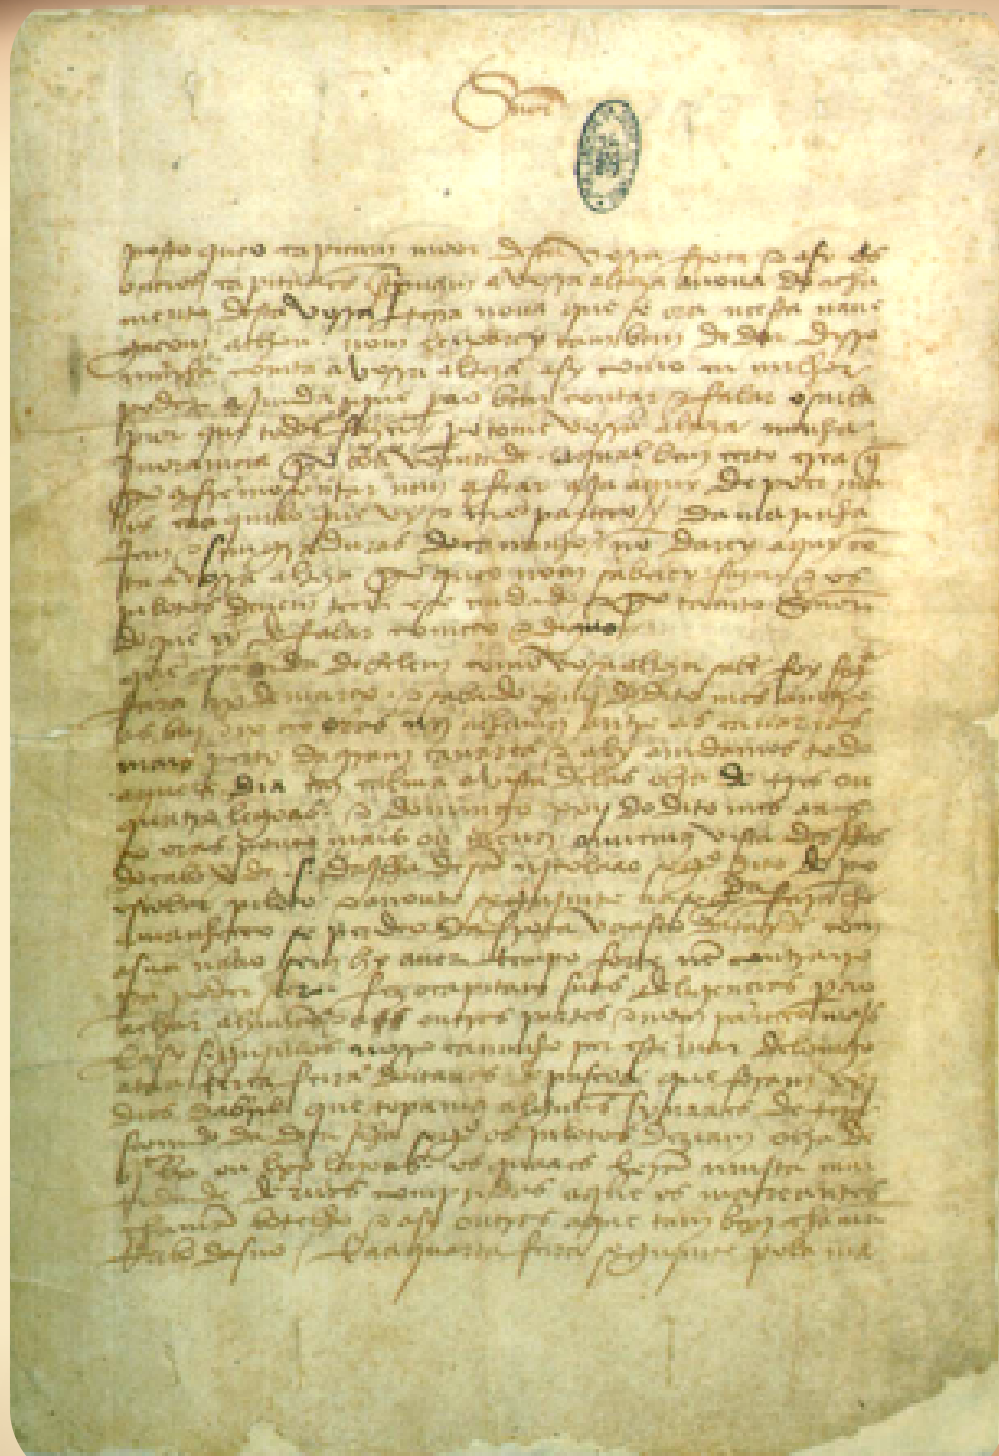 Snõr
posto queo capitam moor desta vossa frota e asy os
outros capitaães screpuam a vossa alteza a noua do acha
mento desta vossa terra noua que se ora neesta naue
gaçam achou. nom leixarey tambem de dar disso
minha comta a vossa alteza asy como eu milhor
poder ajmda que pera o bem contar e falar o saiba
pior que todos fazer. pero tome vossa alteza minha
jnoramçia por boa vomtade. aqual bem certo crea q̃
por afremosentar nem afear aja aquy de poer ma
is caaquilo que vy e me pareceo / da marinha
jem e simgraduras do caminho nõ darey aquy cõ
ta a vossa alteza por queo nom saberey fazer e os
pilotos deuem teer ese cuidado e por tanto Snõr
do que ey de falar começo e diguo
que a partida de belem como vosa alteza sabe foy segda
feira ix de março. e sabado xiiij do dito mes amtre
as biij e ix oras nos achamos amtre as canareas
mais perto da gram canarea e aly amdamos todo
aquele dia em calma avista delas obra de tres ou
quatro legoas. e domingo xxij do dito mes aas x
oras pouco mais ou menos ouuemos vista dasjlhas
do cabo verde .s. dajlha de sã njcolaao segº dito de pº
escolar piloto. e a noute segujmte aasegda feira lhe
amanheceo se perdeo da frota vaasco datayde com
asua naao sem hy auer tempo forte nẽ contrairo
pera poder seer. fez ocapitam suas deligençias pera o
achar a huũas e a outras partes e nom pareçeo majs
E asy segujmos nosso caminho per este mar delomgo
ataa terça feira doitauas de pascoa que foram xxj
dias dabril que topamos alguũs synaaes de tera
seemdo da dita jlha segº os pilotos deziam obra de
bjc lx ou lxx legoas. os quaaes herã muita cam
tidade deruas compridas aque os mareantes
chamã botelho e asy outras aque tambem chamã
rrabo dasno / E aaquarta feira segujmte pola ma